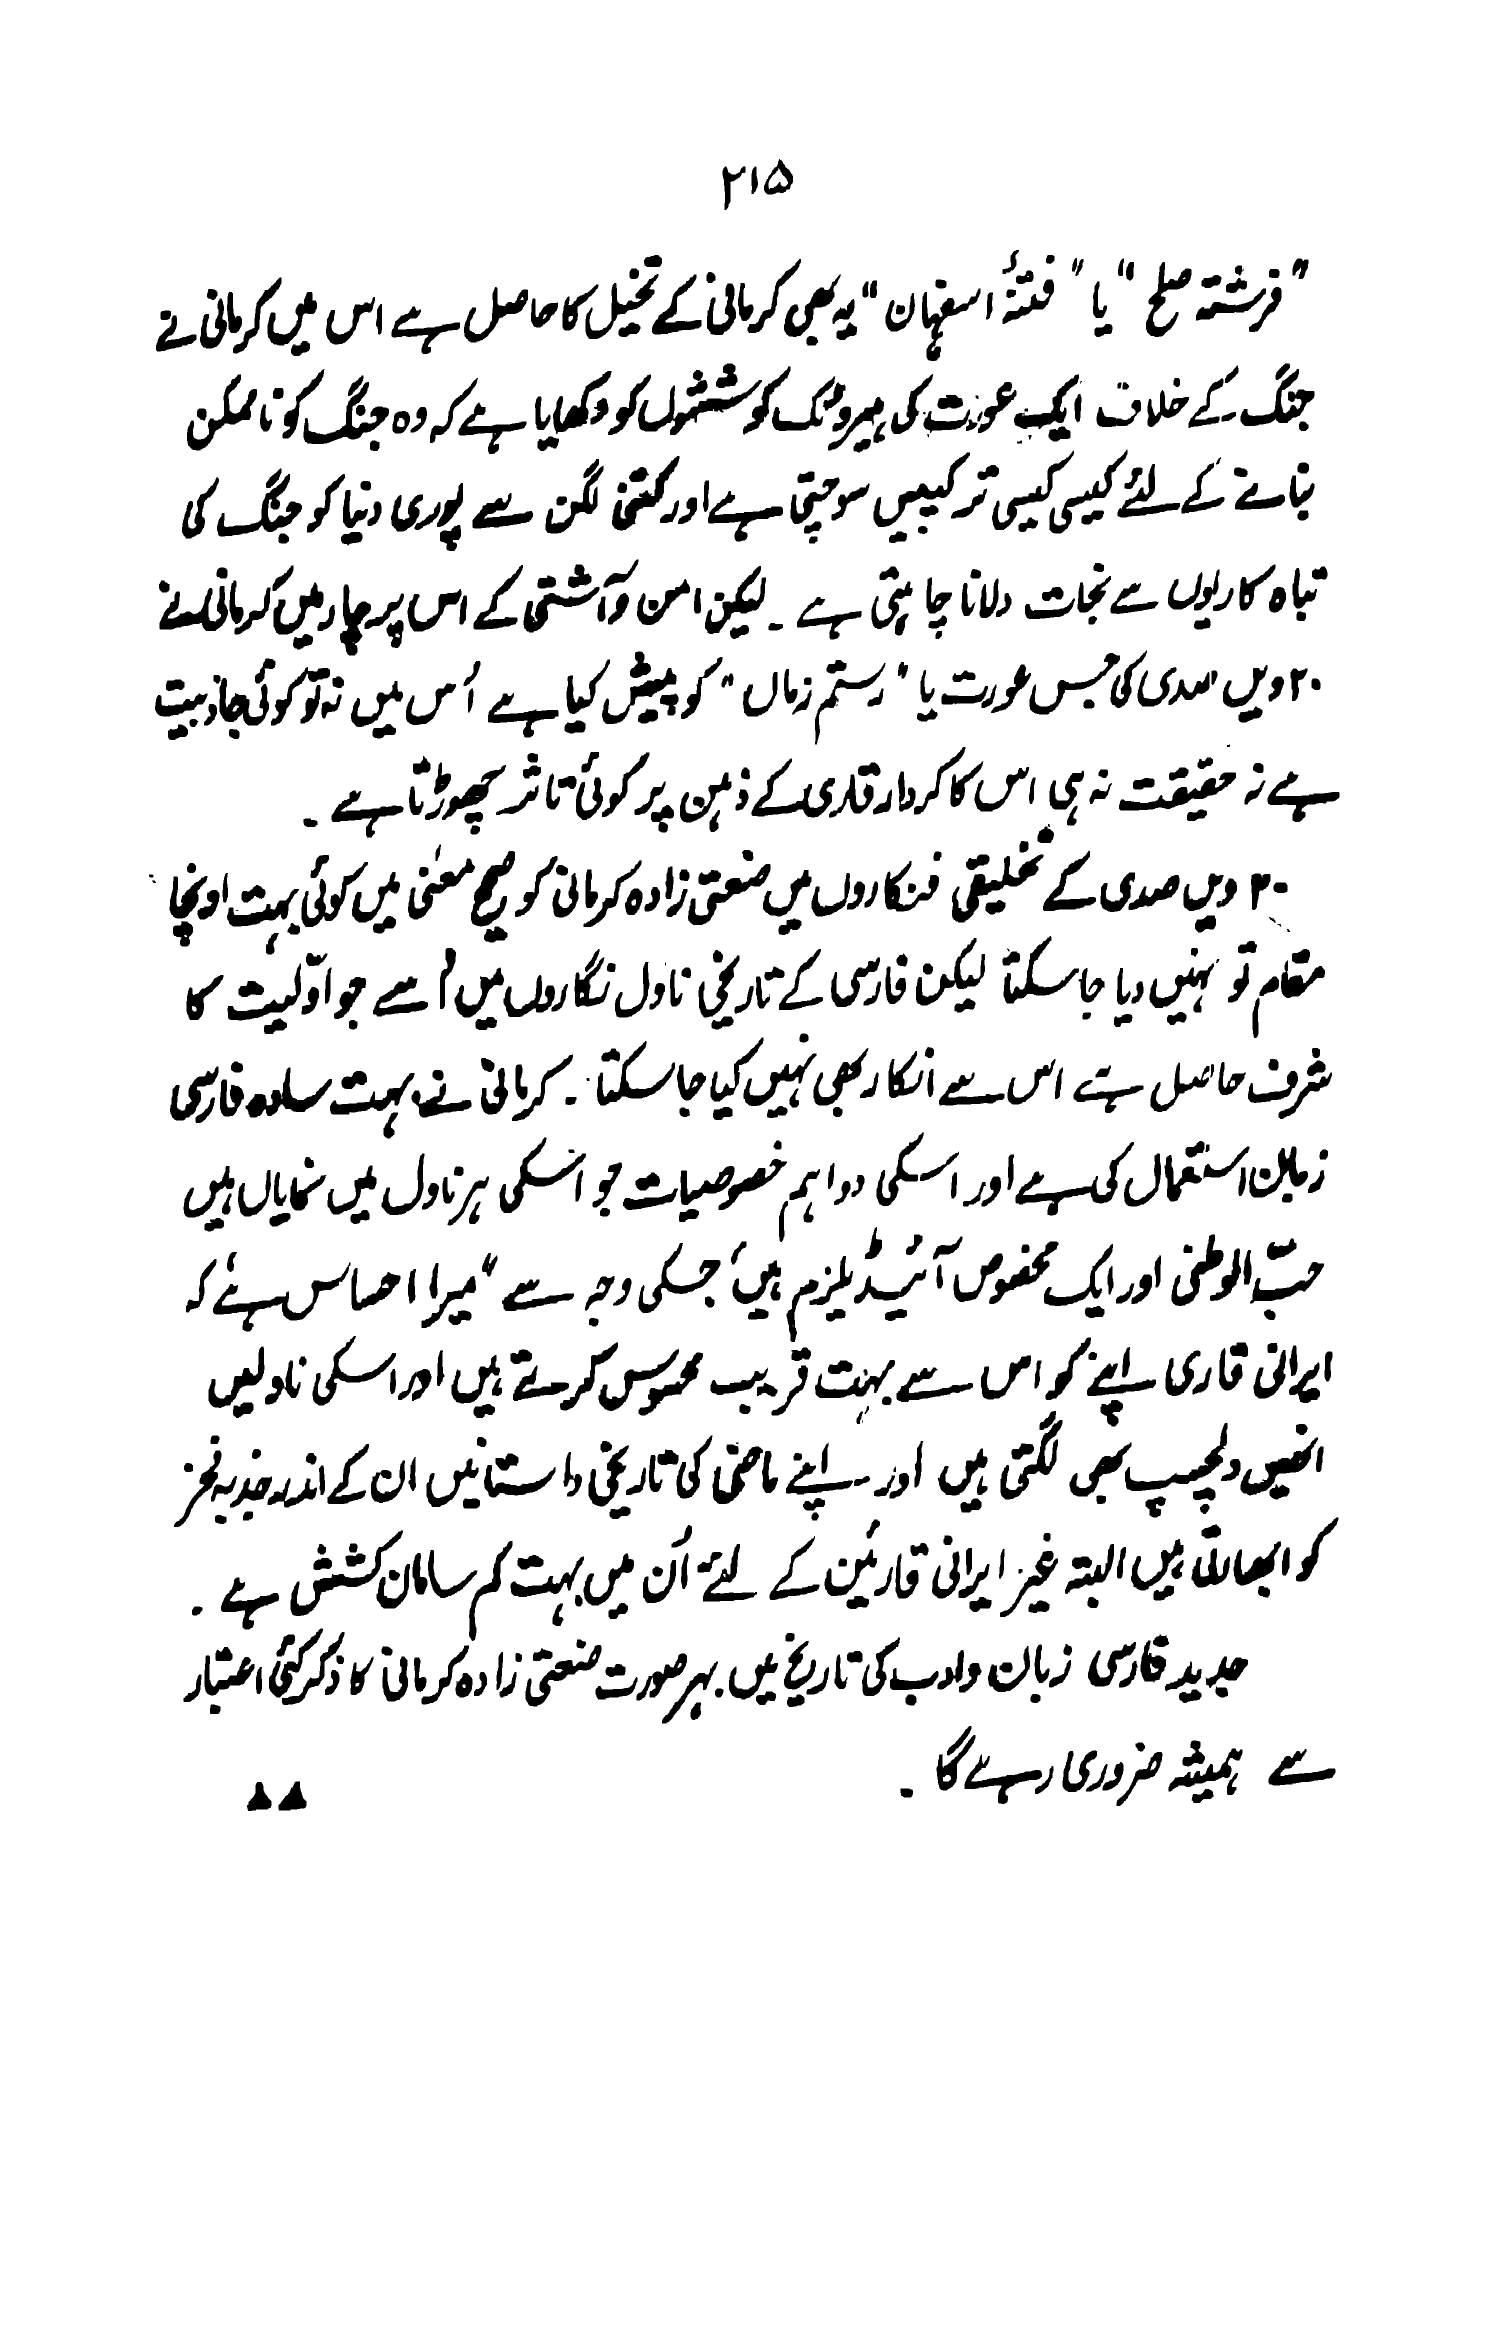 ۲۱۵
"فرشتہ صلح" یا "فتنۂ اسفہان" یہ بھی کرمانی کے تخیل کا حاصل ہے اس میں کرمانی نے
جنگ کے خلاف ایک عورت کی ہیروئک کوششوں کو دکھایا ہے کہ وہ جنگ کو ناممکن
بنانے کے لئے کیسی کیسی ترکیبیں سوچتی ہے اور کتنی لگن سے پوری دنیا کو جنگ کی
تباہ کاریوں سے نجات دلانا چاہتی ہے ۔ لیکن امن و آشتی کے اس پرچار میں کرمانی نے
۲۰ ویں صدی کی جس عورت یا "رستم زماں" کو پیش کیا ہے اُس میں نہ تو کوئی جاذبیت
ہے نہ حقیقت نہ ہی اس کا کردار قاری کے ذہن پر کوئی تاثر چھوڑتا ہے ۔
۲۰ ویں صدی کے تخلیقی فنکاروں میں صنعتی زادہ کرمانی کو صیح معنٰی میں کوئی بہت اونچا
مقام تو نہیں دیا جا سکتا لیکن فارسی کے تاریخی ناول نگاروں میں اُسے جو اوّلیت کا
شرف حاصل ہے اس سے انکار بھی نہیں کیا جا سکتا ۔ کرمانی نے بہت سادہ فارسی
زبان استعمال کی ہے اور اسکی دو اہم خصوصیات جو اسکی ہر ناول میں نمایاں ہیں
حبّ الوطنی اور ایک مخصوص آئیڈیلزم ہیں، جسکی وجہ سے "میرا احساس ہے، کہ
ایرانی قاری اپنے کو اس سے بہت قریب محسوس کرتے ہیں اور اسکی ناولیں
انھیں دلچسپ بھی لگتی ہیں اور اپنے ماضی کی تاریخی داستانیں ان کے اندر جذبہ فخر
کو ابھارتی ہیں البتہ غیر ایرانی قارئین کے لئے اُن میں بہت کم سامان کشش ہے ۔
جدید فارسی زبان و ادب کی تاریخ میں بہر صورت صنعتی زادہ کرمانی کا ذکر کئی اعتبار
سے ہمیشہ ضروری رہے گا ۔